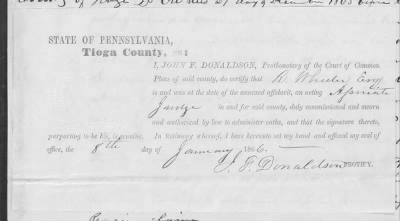 day of December 1865
STATE OF PENNSYLVANIA,
Tioga County, ss:
I, JOHN F. DONALDSON, Prothonotary of the Court of Common
Pleas of said county, do certify that D. Wheeler Esq
is and was at the date of the annexed affidavit, an acting Associate
Judge in and for said county, duly commissioned and sworn
and authorized by law to administer oaths, and that the signature thereto,
purporting to be his, is genuine. In testimony whereof, I have hereunto set my hand and affixed my seal of
office, the 8th day of January 1866.
J. F. Donaldson PROTH'Y.